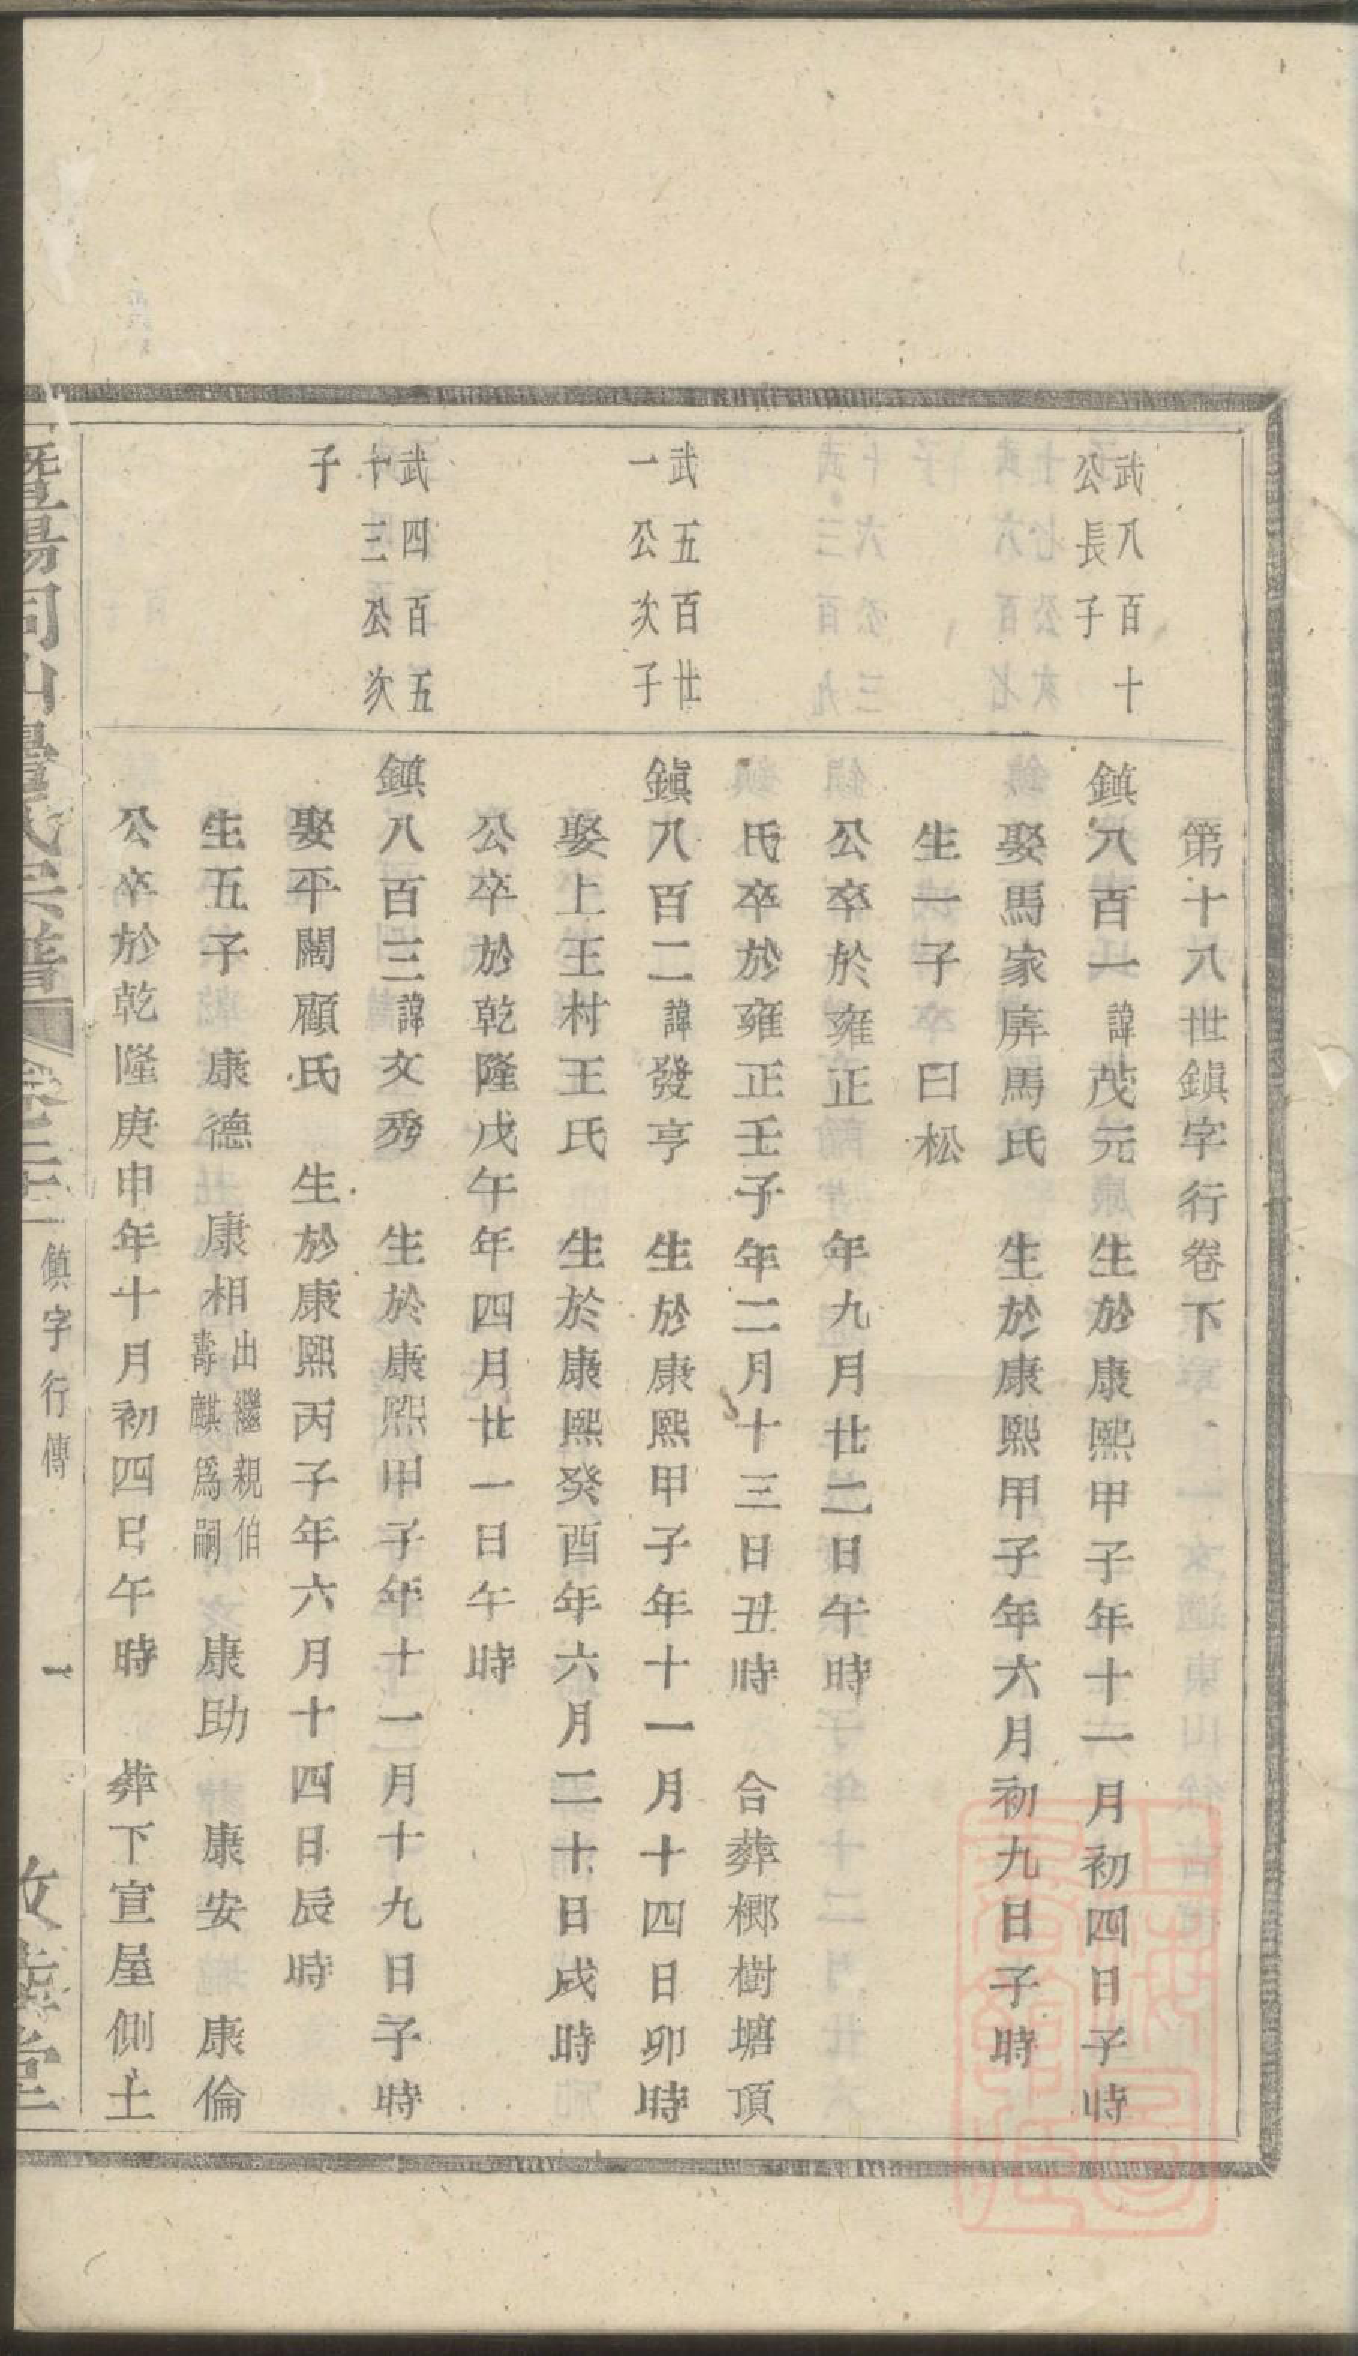 第十八世鎮字行卷下
武八百十
公長子
鎮八百一諱茂元 生於康熙甲子年十一月初四日子時
娶馬家庰馬氏 生於康熙甲子年六月初九日子時
生一子 曰松
公卒於雍正 年九月廿二日午時
氏卒於雍正壬子年二月十三日丑時 合葬櫟樹塘頂
武五百廿
一公次子
鎮八百二諱發亨 生於康熙甲子年十一月十四日卯時
娶上王村王氏 生於康熙癸酉年六月二十日戌時
公卒於乾隆戊午年四月廿一日午時
武四百五
十三公次
子
鎮八百三諱文秀 生於康熙甲子年十一月十九日子時
娶平闊顧氏 生於康熙丙子年六月十四日辰時
生五子 康德 康相出繼親伯壽麒爲嗣 康助 康安 康倫
公卒於乾隆庚申年十月初四日午時 葬下宣屋側土
暨陽同山邊氏宗譜
鎮字行傳
一